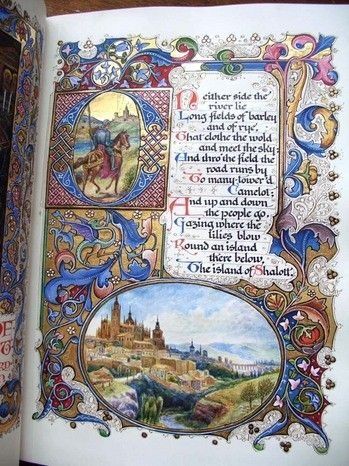 On either side the
river lie
Long fields of barley
and of rye,
That clothe the wold
and meet the sky;
And thro' the field the
road runs by
To many-tower'd
Camelot;
And up and down
the people go,
Gazing where the
lilies blow
Round an island
there below,
The island of Shalott.